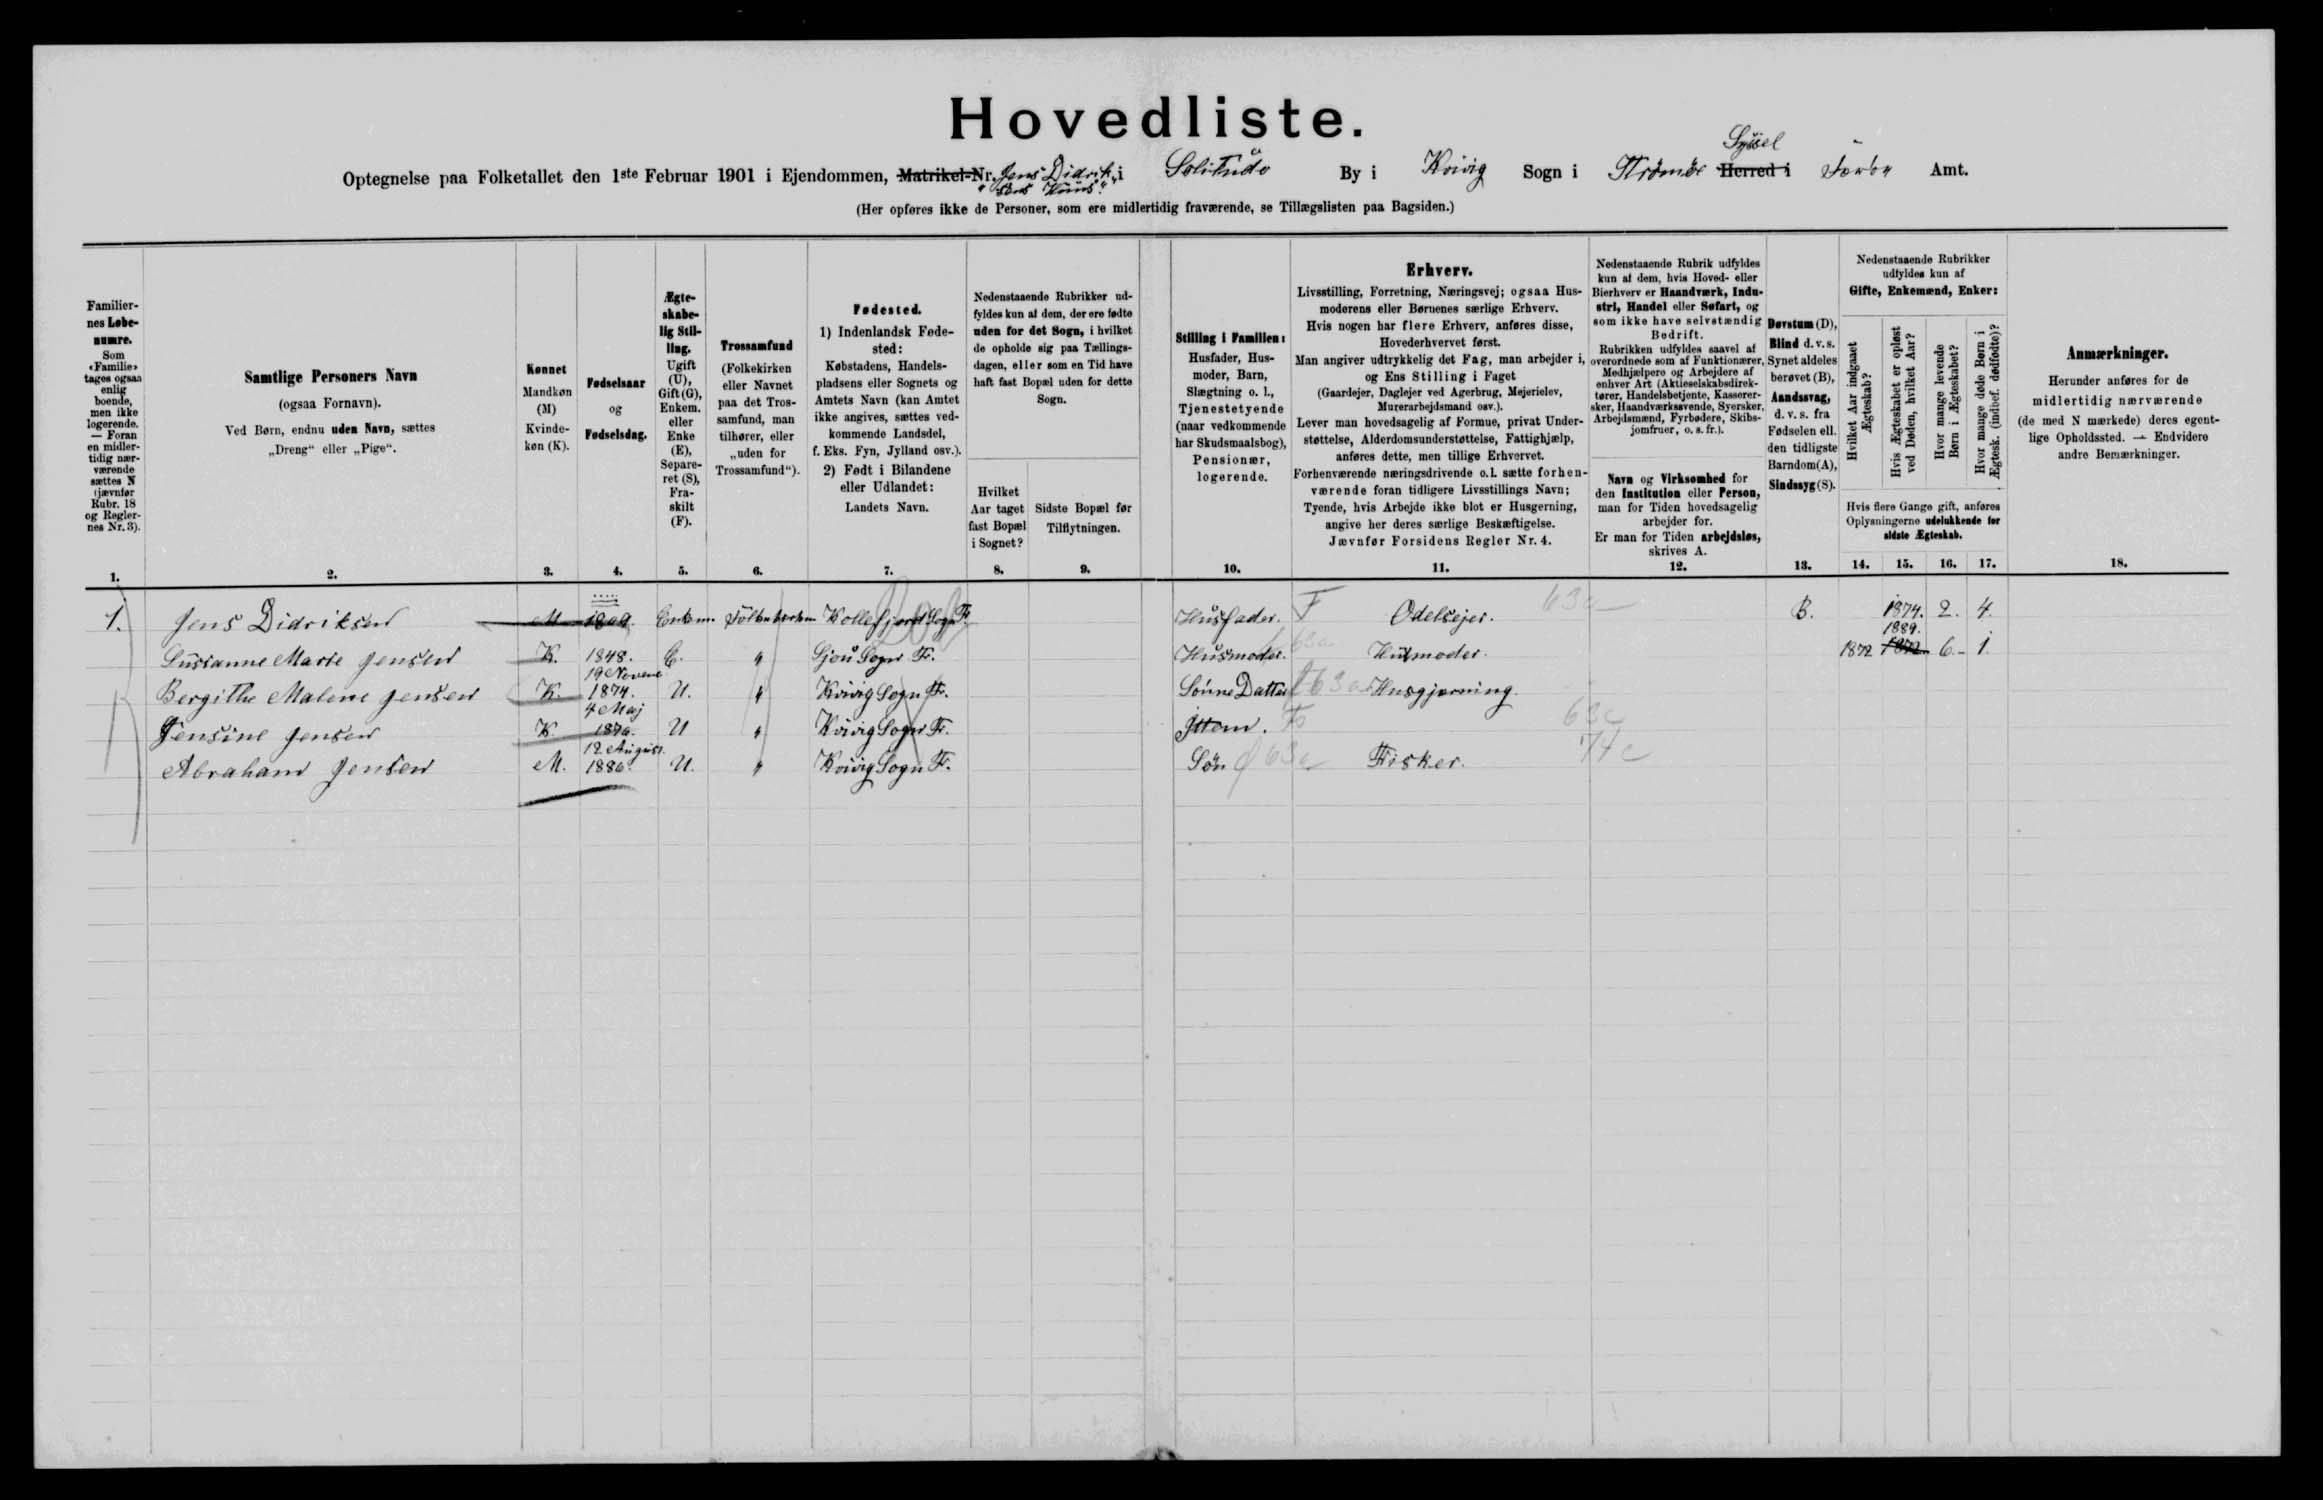 Hovedliste.
Syssel
Optegnelse paa Folketallet den 1ste Februar 1901 i Ejendommen, Matrikel-Nr. Jens Didrik- i Solitude By i Kvivig Sogn i Strømø Herred i Færø Amt.
"sens Huus"
(Her opføres ikke de Personer, som ere midlertidig fraværende, se Tillægslisten paa Bagsiden.)
Familiernes Løbenumre.
Som «Familie» tages ogsaa enlig boende, men ikke logerende. — Foran en midlertidig nærværende sættes N (jævnfør Rubr. 18 og Reglernes Nr. 3).
1.
Samtlige Personers Navn
(ogsaa Fornavn).
Ved Børn, endnu uden Navn, sættes
„Dreng“ eller „Pige“.
2.
Kønnet
Mandkøn (M)
Kvindekøn (K).
3.
Fødselsaar
og
Fødselsdag.
4.
Ægteskabelig Stilling.
Ugift (U), Gift (G), Enkem. eller Enke (E), Separeret (S), Fraskilt (F).
5.
Trossamfund
(Folkekirken eller Navnet paa det Trossamfund, man tilhører, eller „uden for Trossamfund“).
6.
Fødested.
1) Indenlandsk Fødested:
Købstadens, Handelspladsens eller Sognets og Amtets Navn (kan Amtet ikke angives, sættes vedkommende Landsdel, f. Eks. Fyn, Jylland osv.).
2) Født i Bilandene eller Udlandet:
Landets Navn.
7.
Nedenstaaende Rubrikker udfyldes kun af dem, der ere fødte uden for det Sogn, i hvilket de opholde sig paa Tællingsdagen, eller som en Tid have haft fast Bopæl uden for dette Sogn.
Hvilket Aar taget fast Bopæl i Sognet?
8.
Sidste Bopæl før Tilflytningen.
9.
Stilling i Familien:
Husfader, Husmoder, Barn, Slægtning o. l., Tjenestetyende (naar vedkommende har Skudsmaalsbog), Pensionær, logerende.
10.
Erhverv.
Livsstilling, Forretning, Næringsvej; ogsaa Husmoderens eller Børnenes særlige Erhverv.
Hvis nogen har flere Erhverv, anføres disse, Hovederhvervet først.
Man angiver udtrykkelig det Fag, man arbejder i, og Ens Stilling i Faget
(Gaardejer, Daglejer ved Agerbrug, Mejerielev, Murerarbejdsmand osv.).
Lever man hovedsagelig af Formue, privat Understøttelse, Alderdomsunderstøttelse, Fattighjælp, anføres dette, men tillige Erhvervet.
Forhenværende næringsdrivende o. l. sætte forhenværende foran tidligere Livsstillings Navn;
Tyende, hvis Arbejde ikke blot er Husgerning, angive her deres særlige Beskæftigelse.
Jævnfør Forsidens Regler Nr. 4.
11.
Nedenstaaende Rubrik udfyldes kun af dem, hvis Hoved- eller Bierhverv er Haandværk, Industri, Handel eller Søfart, og som ikke have selvstændig Bedrift.
Rubrikken udfyldes saavel af overordnede som af Funktionærer, Medhjælpere og Arbejdere af enhver Art (Aktieselskabsdirektører, Handelsbetjente, Kassererersker, Haandværkssvende, Syersker, Arbejdsmænd, Fyrbødere, Skibsjomfruer, o. s. fr.).
Navn og Virksomhed for den Institution eller Person, man for Tiden hovedsagelig arbejder for.
Er man for Tiden arbejdsløs, skrives A.
12.
Døvstum (D),
Blind d. v. s. Synet aldeles berøvet (B),
Aandssvag, d. v. s. fra Fødselen ell. den tidligste Barndom (A),
Sindssyg (S).
13.
Nedenstaaende Rubrikker udfyldes kun af
Gifte, Enkemænd, Enker:
Hvilket Aar indgaaet Ægteskab?
Hvis Ægteskabet er opløst ved Døden, hvilket Aar?
Hvor mange levende Børn i Ægteskabet?
Hvor mange døde Børn i Ægtesk. (indbef. dødfødte)?
Hvis flere Gange gift, anføres Oplysningerne udelukkende for sidste Ægteskab.
14. 15. 16. 17.
Anmærkninger.
Herunder anføres for de midlertidig nærværende (de med N mærkede) deres egentlige Opholdssted. — Endvidere andre Bemærkninger.
18.
1. Jens Didriksen M Enkem. Folkekirken Kollefjord Sogn Fr. Husfader. F Odelsejer. 63a B. 1874. 2. 4.
Sussanne Marie Jensen K. 1848. E. " Sjou Sogn Fr. Husmoder. 63a Husmoder. 1872 1889. 1872 6. 1.
Bergithe Malene Jensen K. 19 Novem 1874. U. " Kvivig Sogn Fr. Sønne Datter 63a Husgjerning.
Jensine Jensen K 4 Maj 1876. U " Kvivig Sogn Fr. Ittem. 63c
Abraham Jensen M. 12 August 1886. U. " Kvivig Sogn Fr. Søn 63a Fisker. 74c